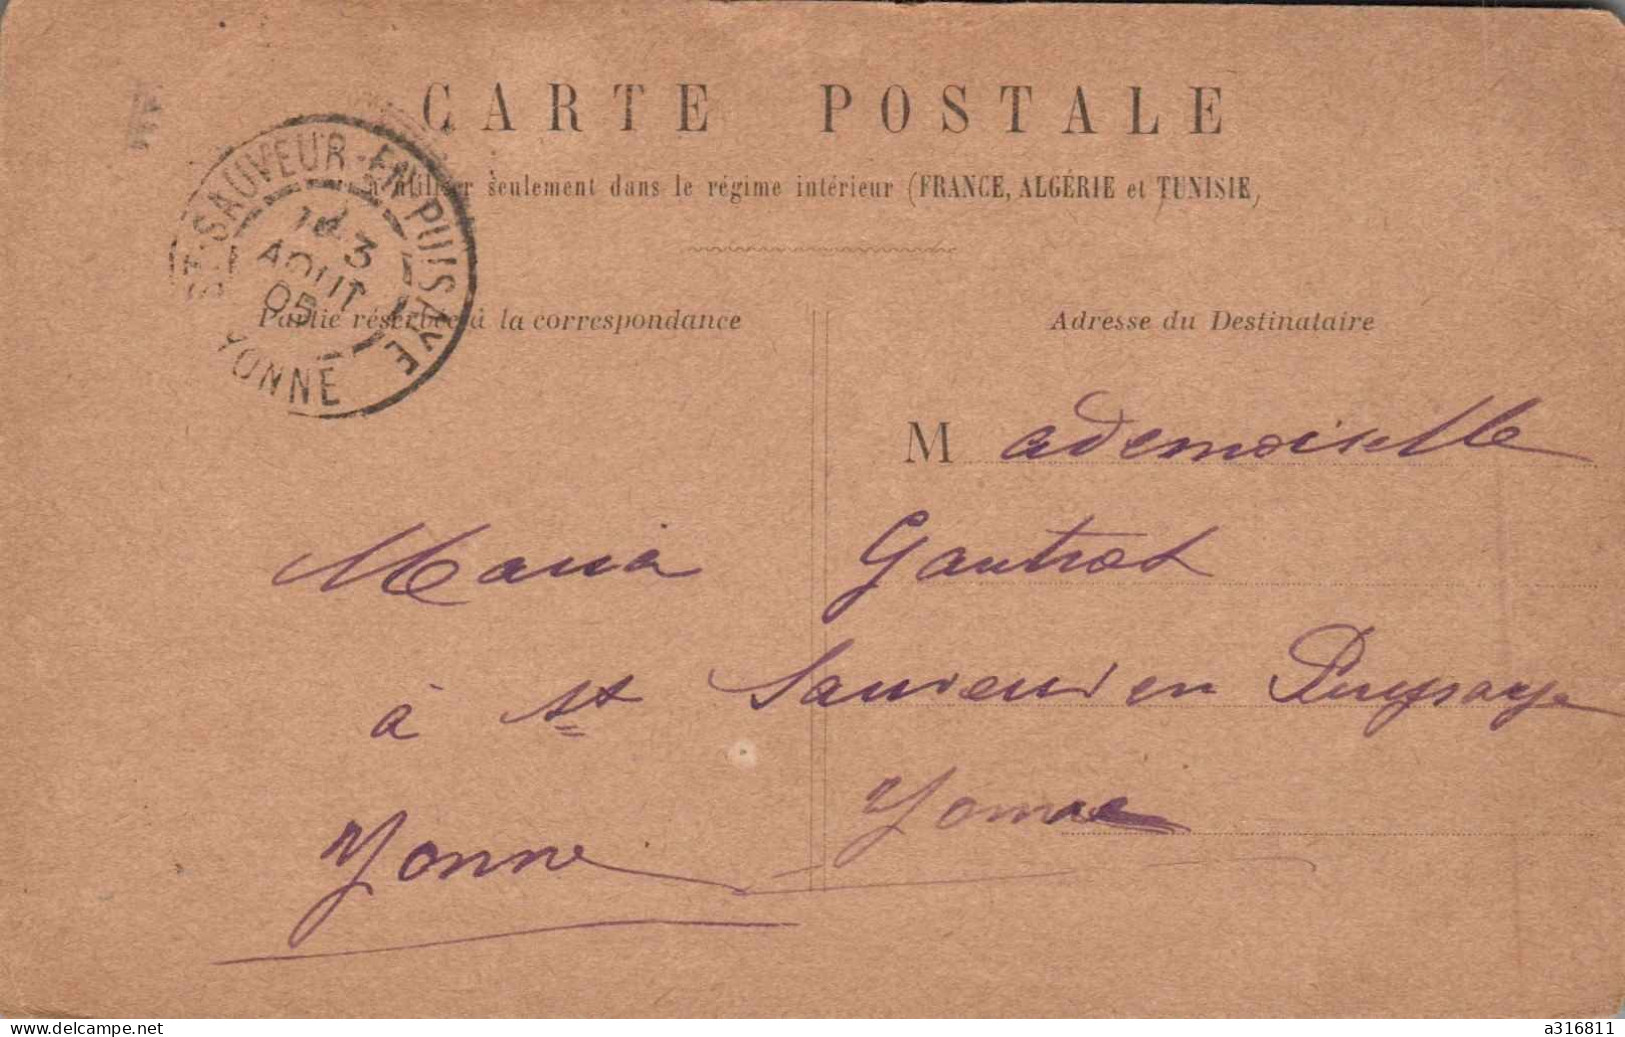 CARTE POSTALE
à utiliser seulement dans le régime intérieur (FRANCE, ALGÉRIE et TUNISIE)
ST-SAUVEUR-EN-PUISAYE
3
AOUT
05
YONNE
Partie réservée à la correspondance
Adresse du Destinataire
Mademoiselle
Maria Gautrot
à St Sauveur en Puysaye
Yonne Yonne
www.delcampe.net
a316811